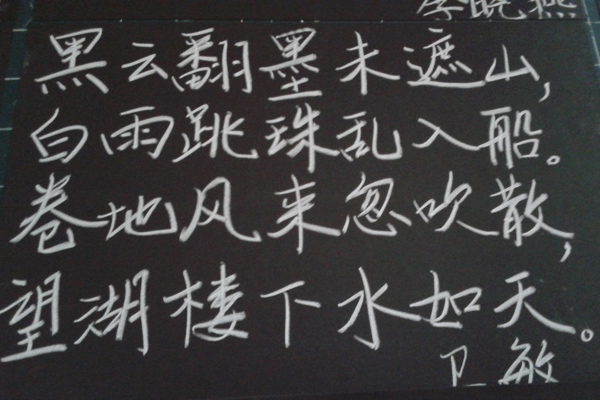 李晓燕
黑云翻墨未遮山，
白雨跳珠乱入船。
卷地风来忽吹散，
望湖楼下水如天。
卫敏